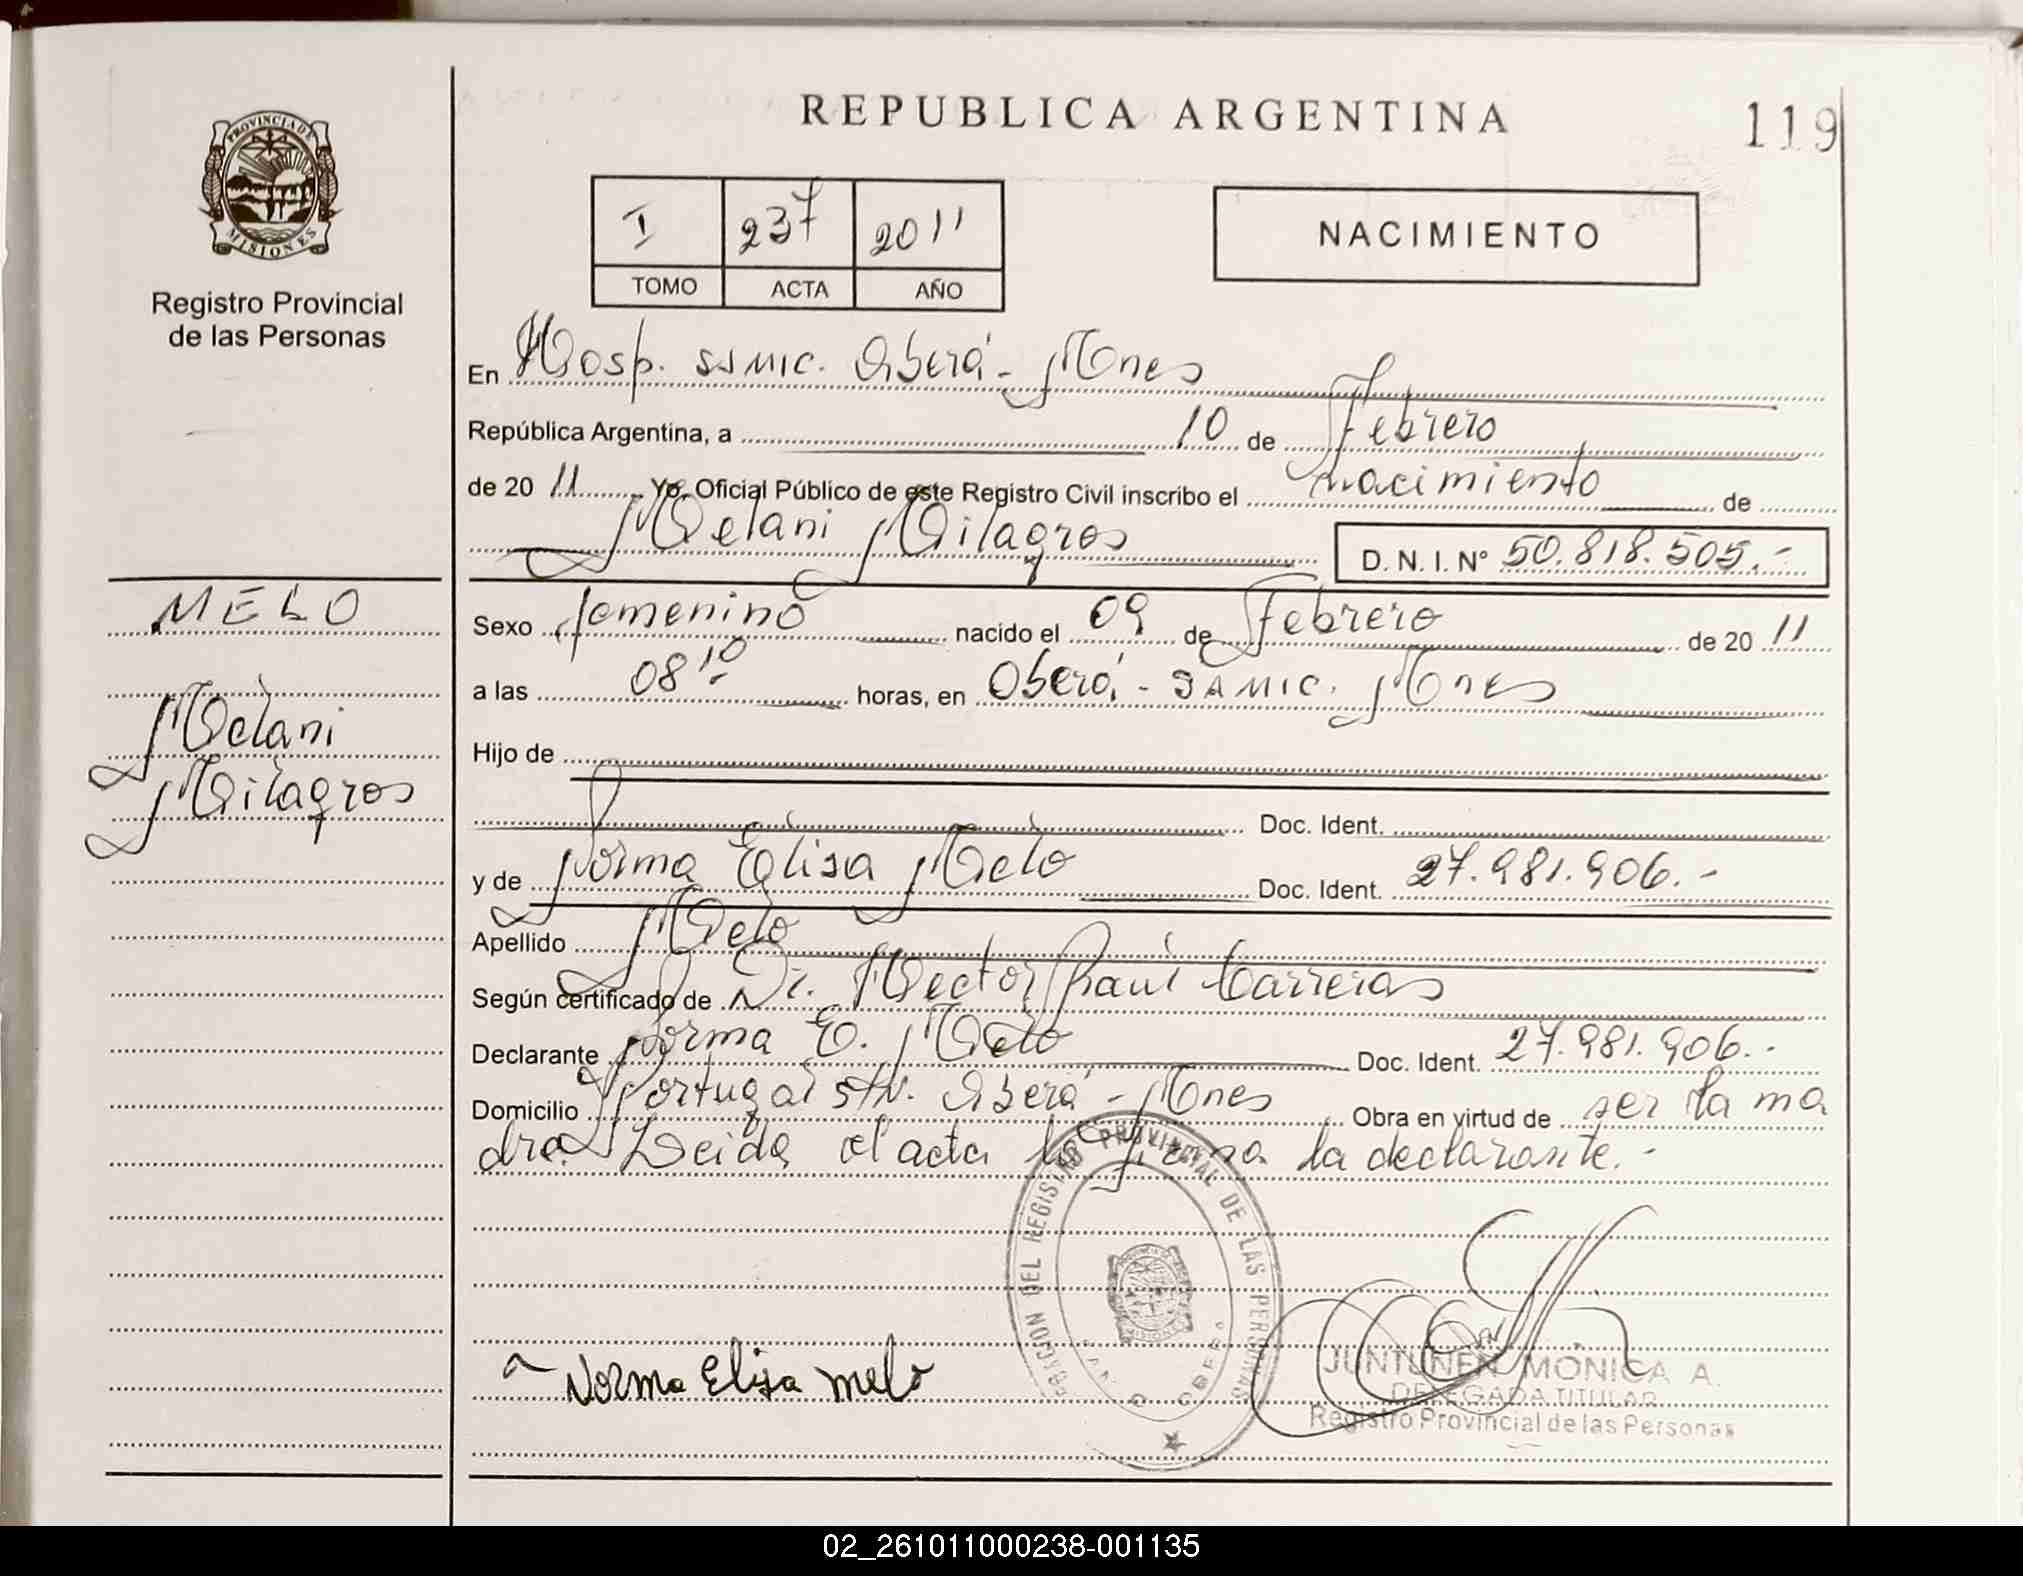 REPUBLICA ARGENTINA
119
PROVINCIA DE MISIONES
Registro Provincial
de las Personas
I 237 2011
TOMO ACTA AÑO
NACIMIENTO
En Hosp. SAMIC. Oberá - Mnes
República Argentina, a 10 de Febrero
de 20 11 Yo, Oficial Público de este Registro Civil inscribo el nacimiento de
Melani Milagros D. N. I. N° 50.818.505.-
MELO
Melani
Milagros
Sexo femenino nacido el 09 de Febrero de 20 11
a las 08 10 horas, en Oberá - SAMIC. Mnes
Hijo de
Doc. Ident.
y de Norma Elisa Melo Doc. Ident. 27.981.906.-
Apellido Melo
Según certificado de Dr. Hector Raul Carreras
Declarante Norma E. Melo Doc. Ident. 27.981.906.-
Domicilio Portugal s/n. Oberá - Mnes Obra en virtud de ser la ma
dre. Leida el acta la firma la declarante.-
DEL REGISTRO PROVINCIAL DE LAS PERSONAS
Norma Elisa Melo
JUNTUNEN MONICA A.
DELEGADA TITULAR
Registro Provincial de las Personas
02_261011000238-001135